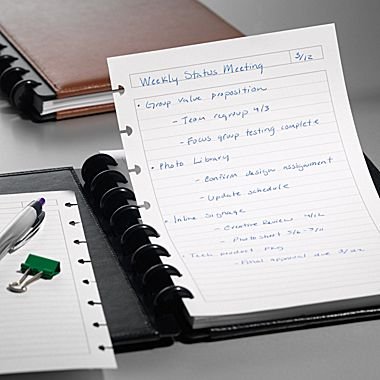 3/12
Weekly Status Meeting
• Group value proposition
- Team regroup 4/3
- Focus group testing complete
• Photo Library
- Confirm design assignment
- Update schedule
• Inline Signage
- Creative Review 4/12
- Photo short
• Tech product pkg
- Final approval due 3/22